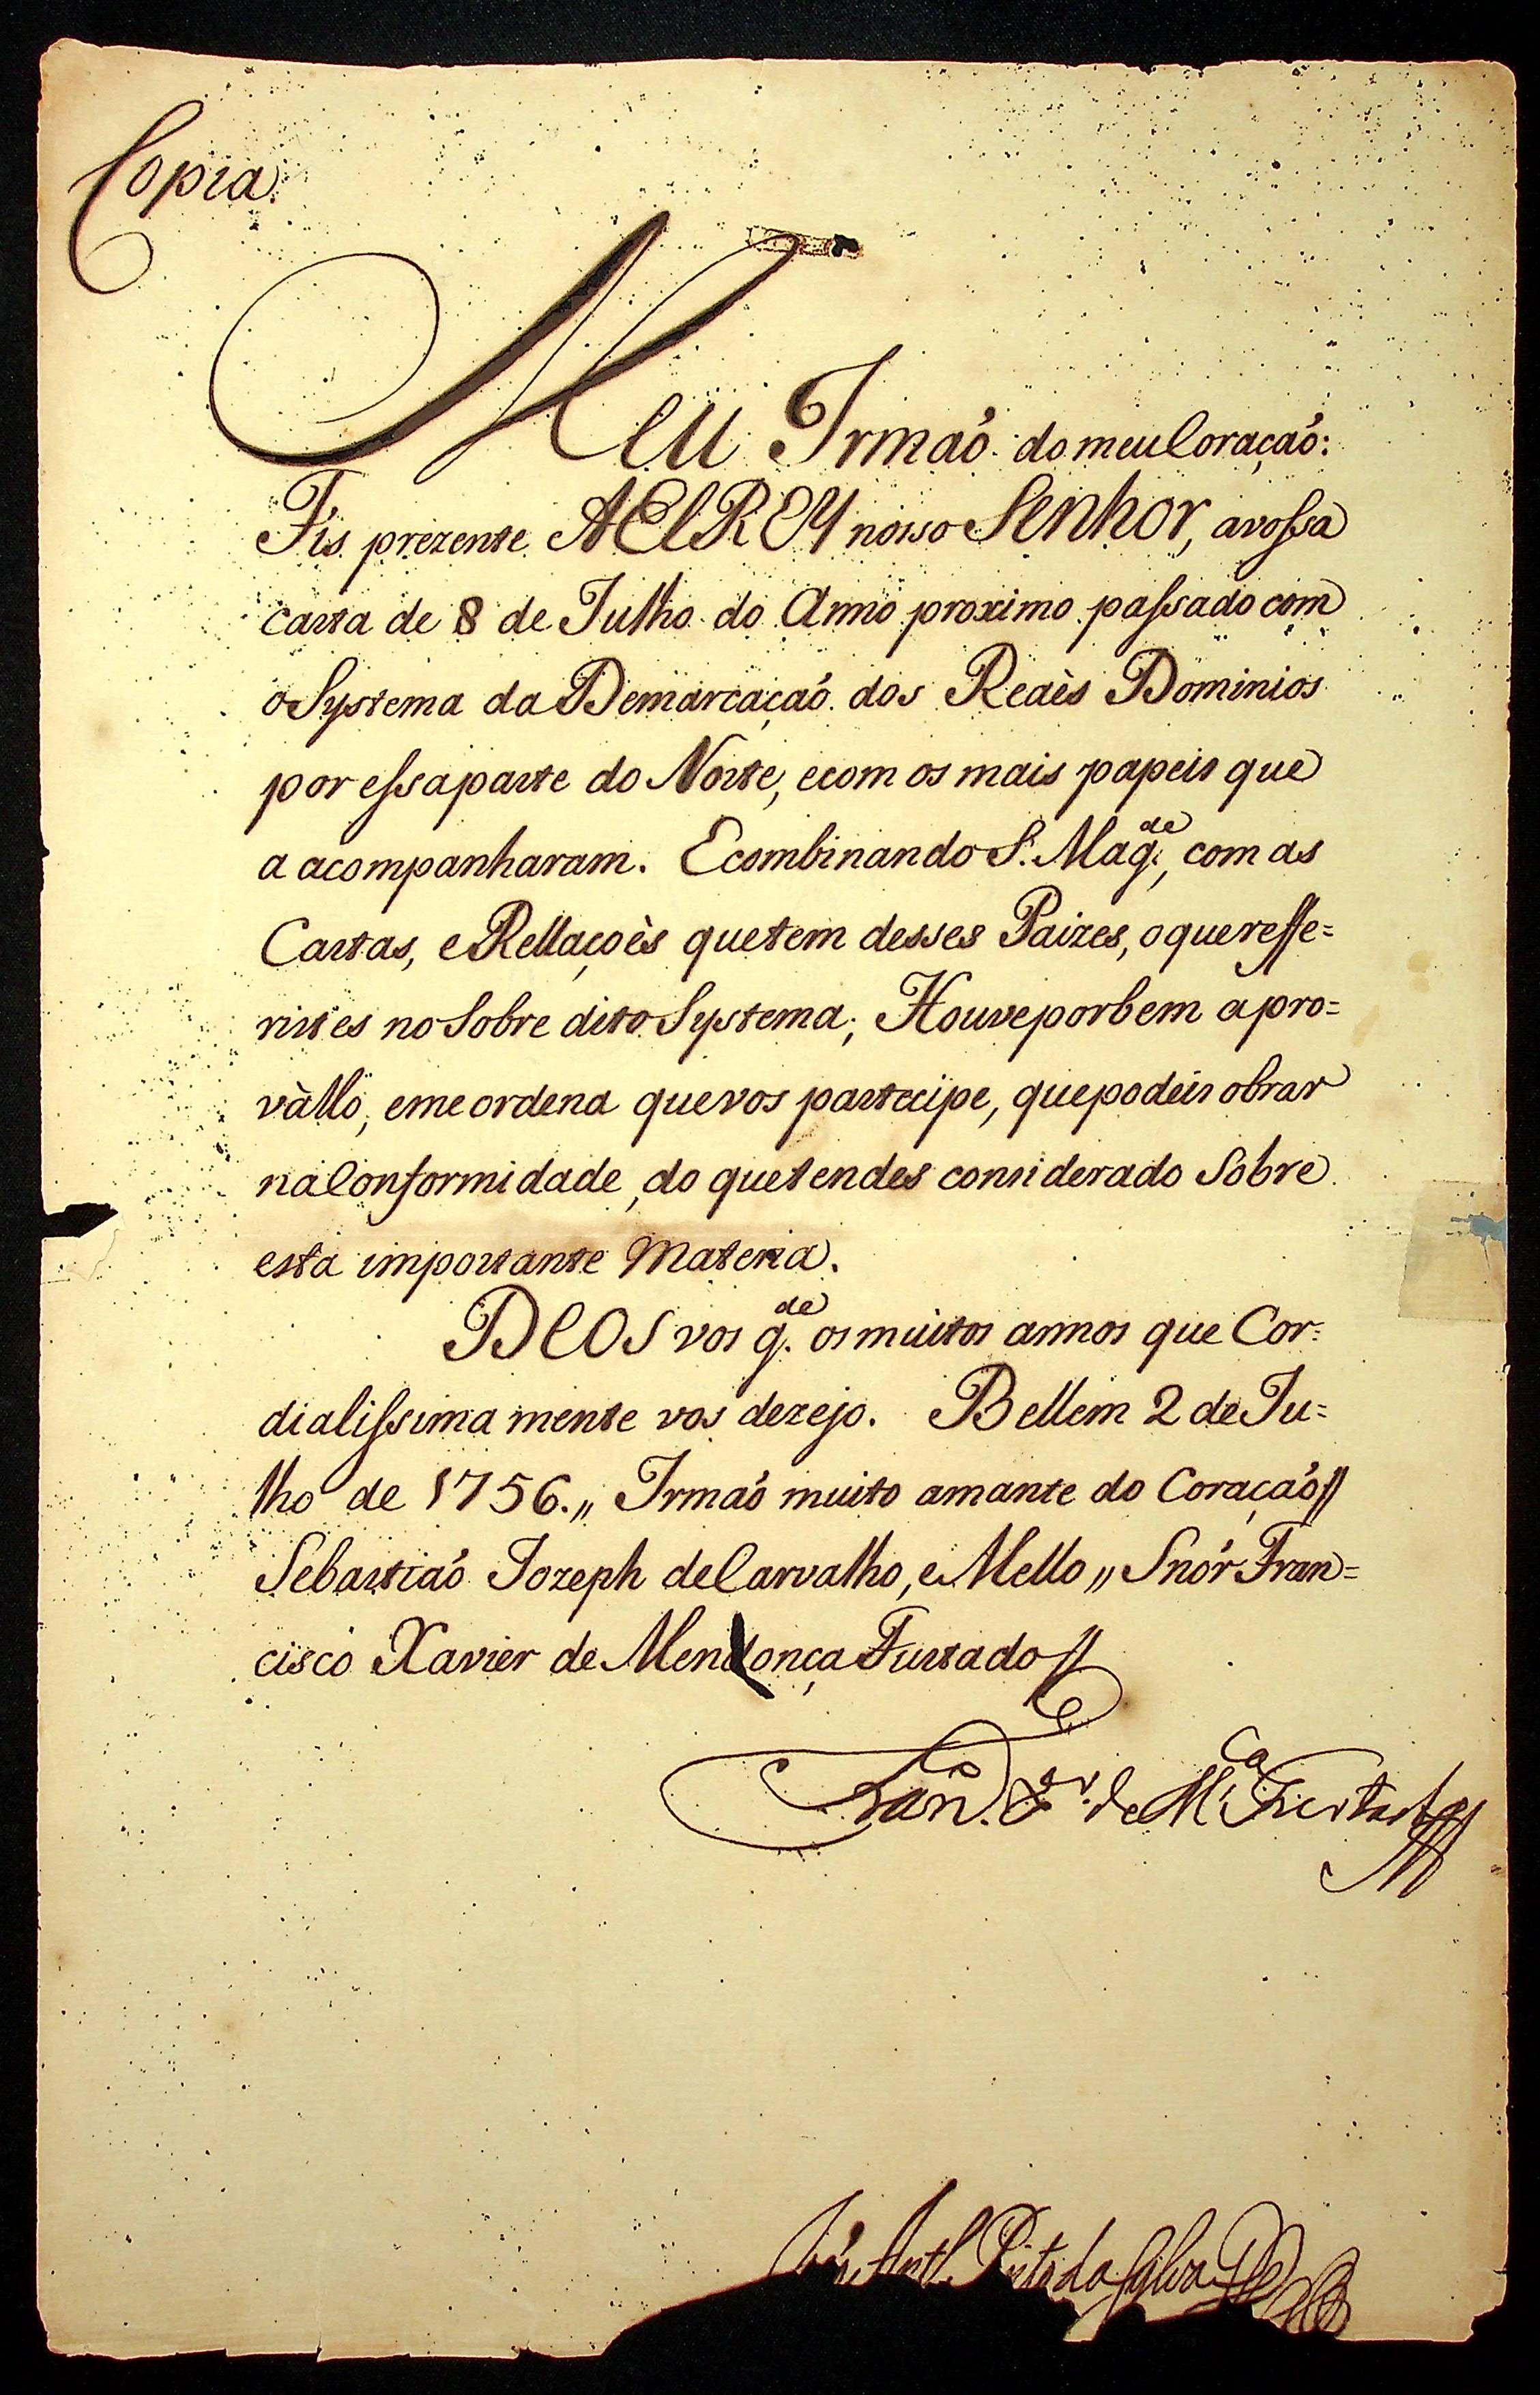 Copia.
Meu Irmaó do meu Coraçaó:
Fis prezente A ElREY nosso Senhor, a vossa
carta de 8 de Julho do Anno proximo passado com
o Systema da Demarcaçaó dos Reaès Dominios
por essa parte do Norte, e com os mais papeis que
a acompanharam. E combinando S. Mag.de, com as
Cartas, e Rellaçoès que tem desses Paizes, o que reffe=
ristes no sobre dito Systema; Houve por bem apro=
vàllo, e me ordena que vos partecipe, que podeis obrar
na Conformidade, do que tendes considerado sobre
esta importante Materia.
DEOS vos g.de os muitos annos que Cor=
dialissima mente vos dezejo. Bellem 2 de Ju=
lho de 1756.,, Irmaó muito amante do Coraçaó//
Sebastiaó Jozeph de Carvalho, e Mello ,, Snór Fran=
cisco Xavier de Mendonça Furtado//
Fran.co X.er de M.ça Furtado
Ant. Pinto da Sylva